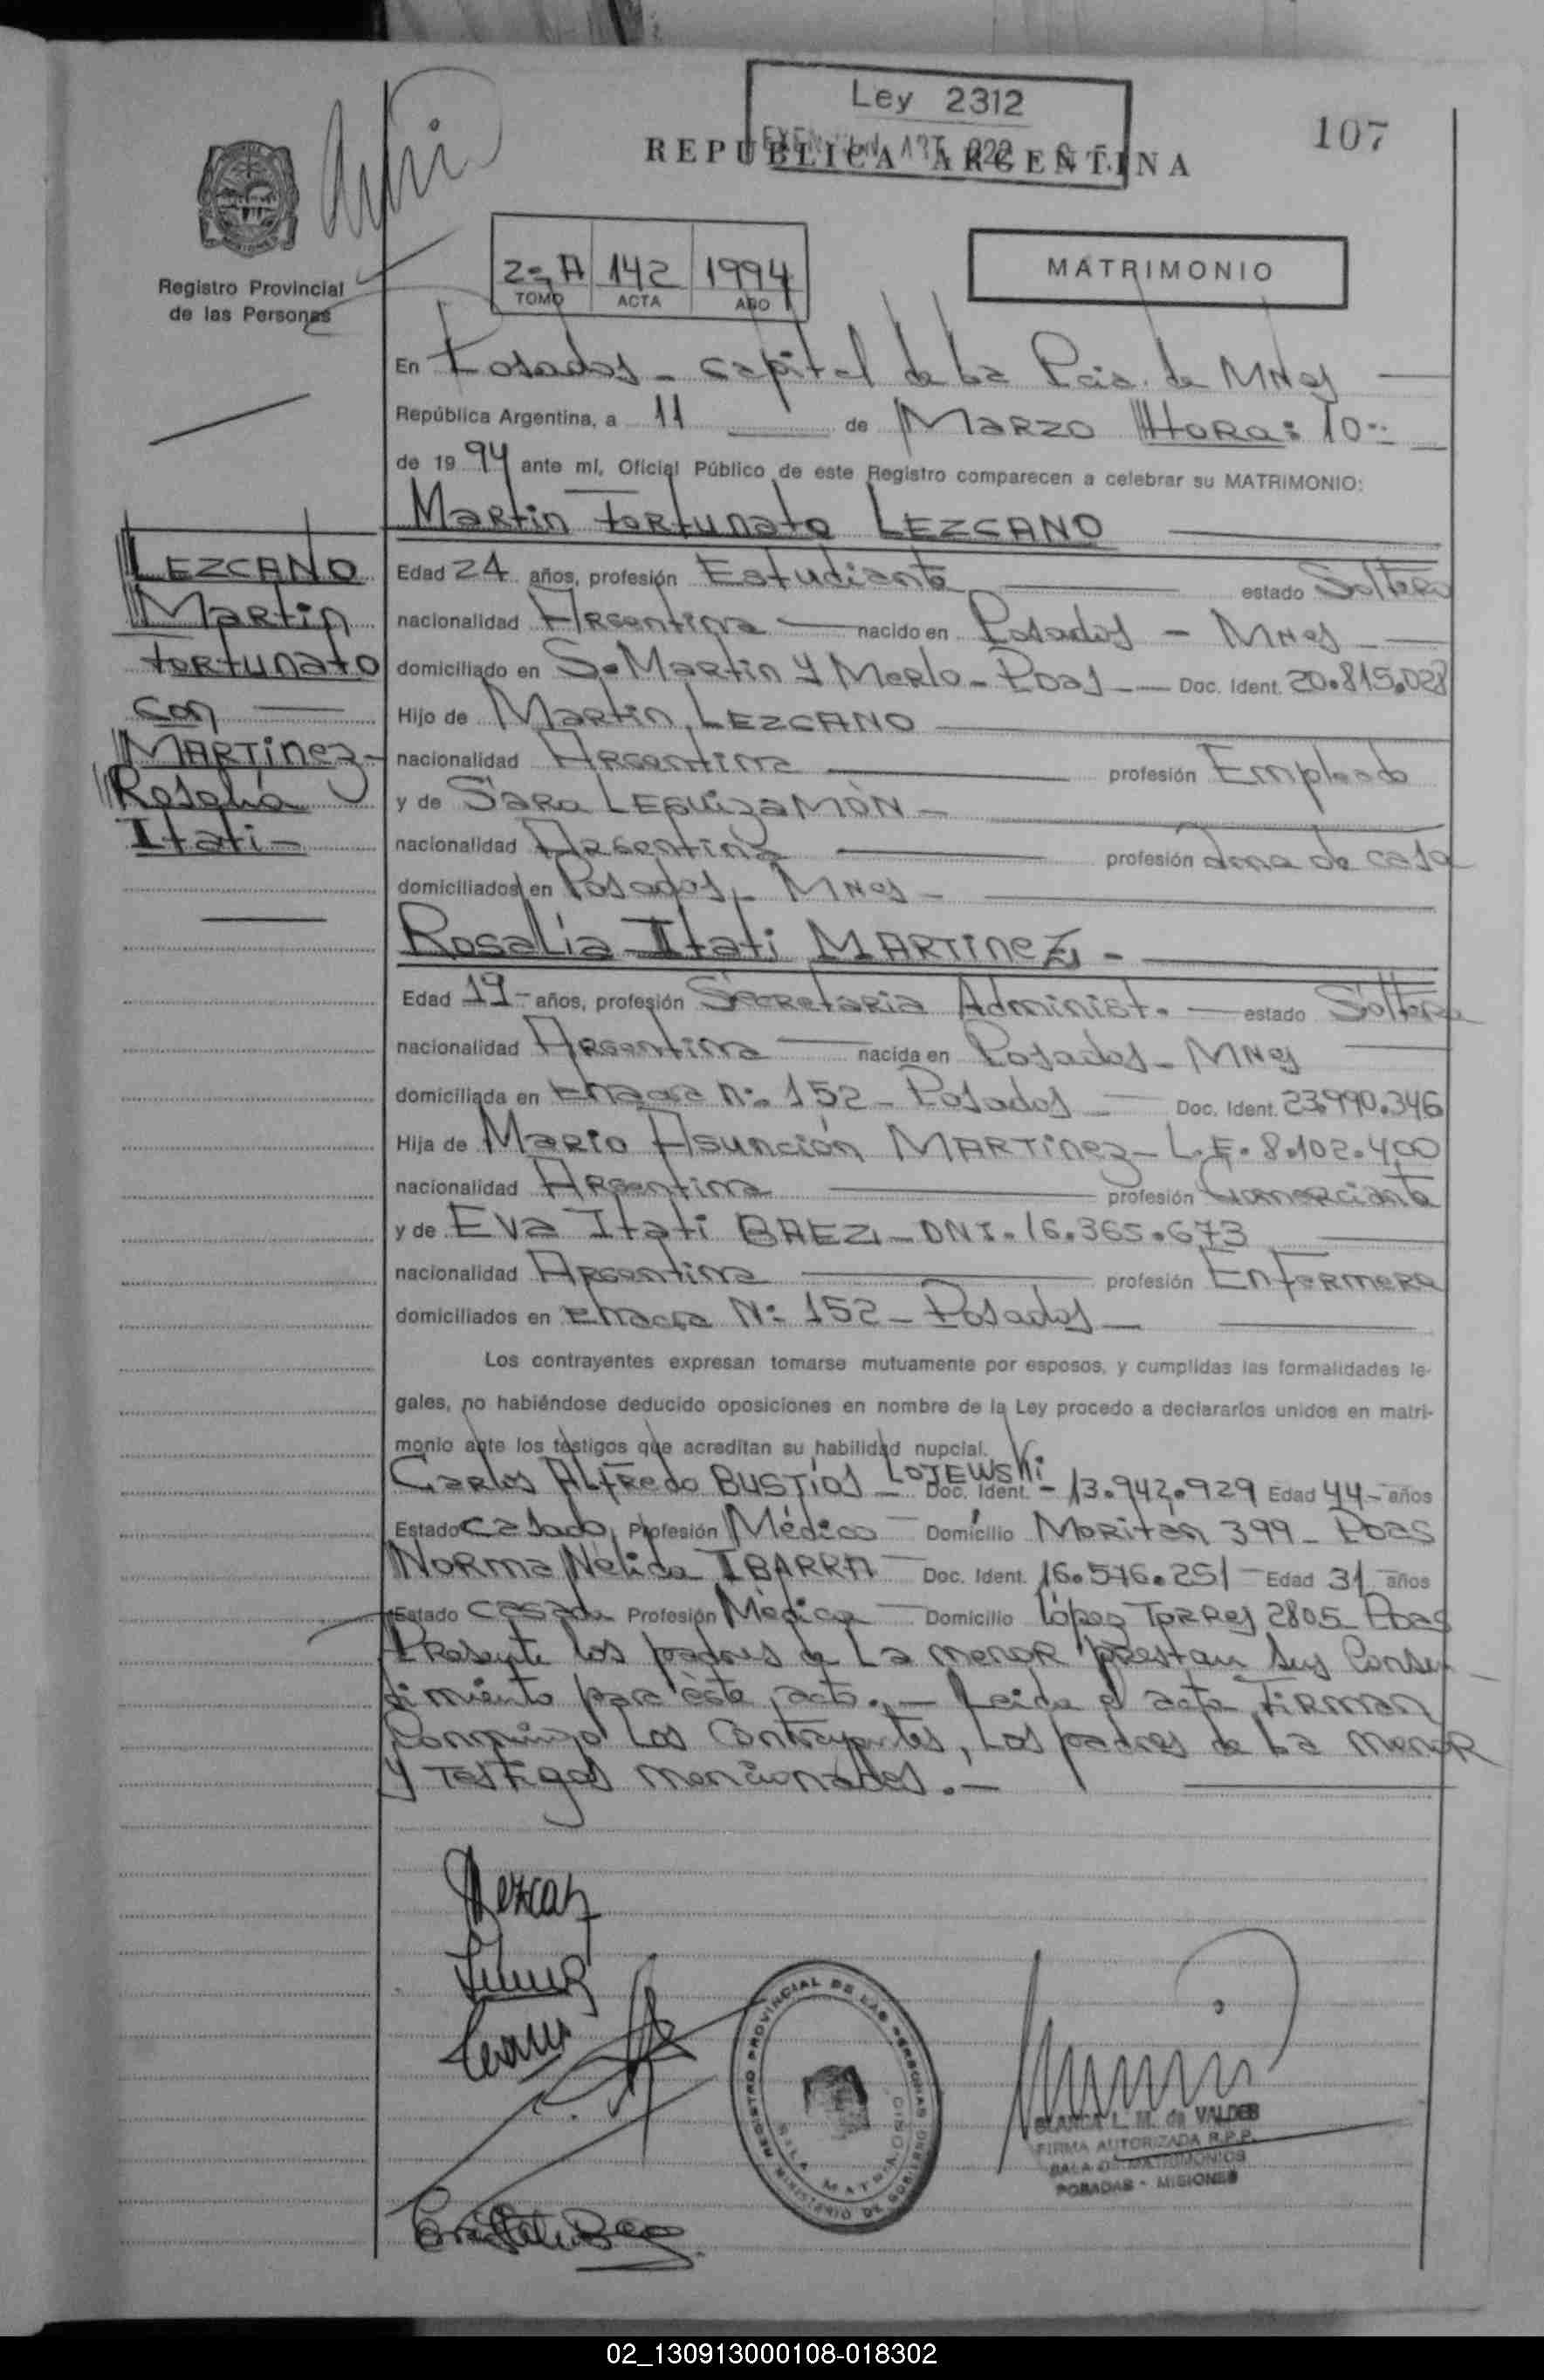 Ley 2312
107
REPUBLICA ARGENTINA
Registro Provincial
de las Personas
2º A 142 1994
TOMO ACTA AÑO
MATRIMONIO
En Posadas - Capital de La Pcia. de Mnes
República Argentina, a 11 de Marzo Hora: 10
de 1994 ante mí, Oficial Público de este Registro comparecen a celebrar su MATRIMONIO:
Martin Fortunato LEZCANO
LEZCANO
Martin
Fortunato
con
MARTINEZ
Rosalía
Itati-
Edad 24 años, profesión Estudiante estado Soltero
nacionalidad Argentina nacido en Posadas - Mnes
domiciliado en S. Martin y Merlo - Pdas - Doc. Ident. 20.815.028
Hijo de Martin LEZCANO
nacionalidad Argentina profesión Empleado
y de Sara LEGUIZAMÓN -
nacionalidad Argentina profesión Ama de casa
domiciliados en Posadas - Mnes -
Rosalía Itati MARTINEZ -
Edad 19 - años, profesión Secretaria Administ. - estado Soltera
nacionalidad Argentina nacida en Posadas - Mnes
domiciliada en Chacra Nº 152 - Posadas - Doc. Ident. 23.990.346
Hija de Mario Asunción MARTINEZ - L.E. 8.102.400
nacionalidad Argentina profesión Comerciante
y de Eva Itati BAEZ - DNI. 16.365.673
nacionalidad Argentina profesión Enfermera
domiciliados en Chacra Nº 152 - Posadas -
Los contrayentes expresan tomarse mutuamente por esposos, y cumplidas las formalidades le-
gales, no habiéndose deducido oposiciones en nombre de la Ley procedo a declararlos unidos en matri-
monio ante los testigos que acreditan su habilidad nupcial.
Carlos Alfredo BUSTIOS - LOJEWSKI Doc. Ident. - 13.942.929 Edad 44 - años
Estado casado Profesión Médico - Domicilio Moritán 399 - Pdas
Norma Nélida IBARRA - Doc. Ident. 16.546.251 - Edad 31 años
Estado casada Profesión Médica - Domicilio López Torres 2805 Pdas
Presente los padres de La menor prestan sus Consen-
timiento para éste acto. - Leida el acta Firman
Conmigo Los Contrayentes, Los padres de La menor
y Testigos mencionados. -
REGISTRO PROVINCIAL DE LAS PERSONAS
MINISTERIO DE GOBIERNO
SALA MATRIMONIO
BLANCA L. M. de VALDES
FIRMA AUTORIZADA R.P.P.
SALA DE MATRIMONIOS
POSADAS - MISIONES
02_130913000108-018302